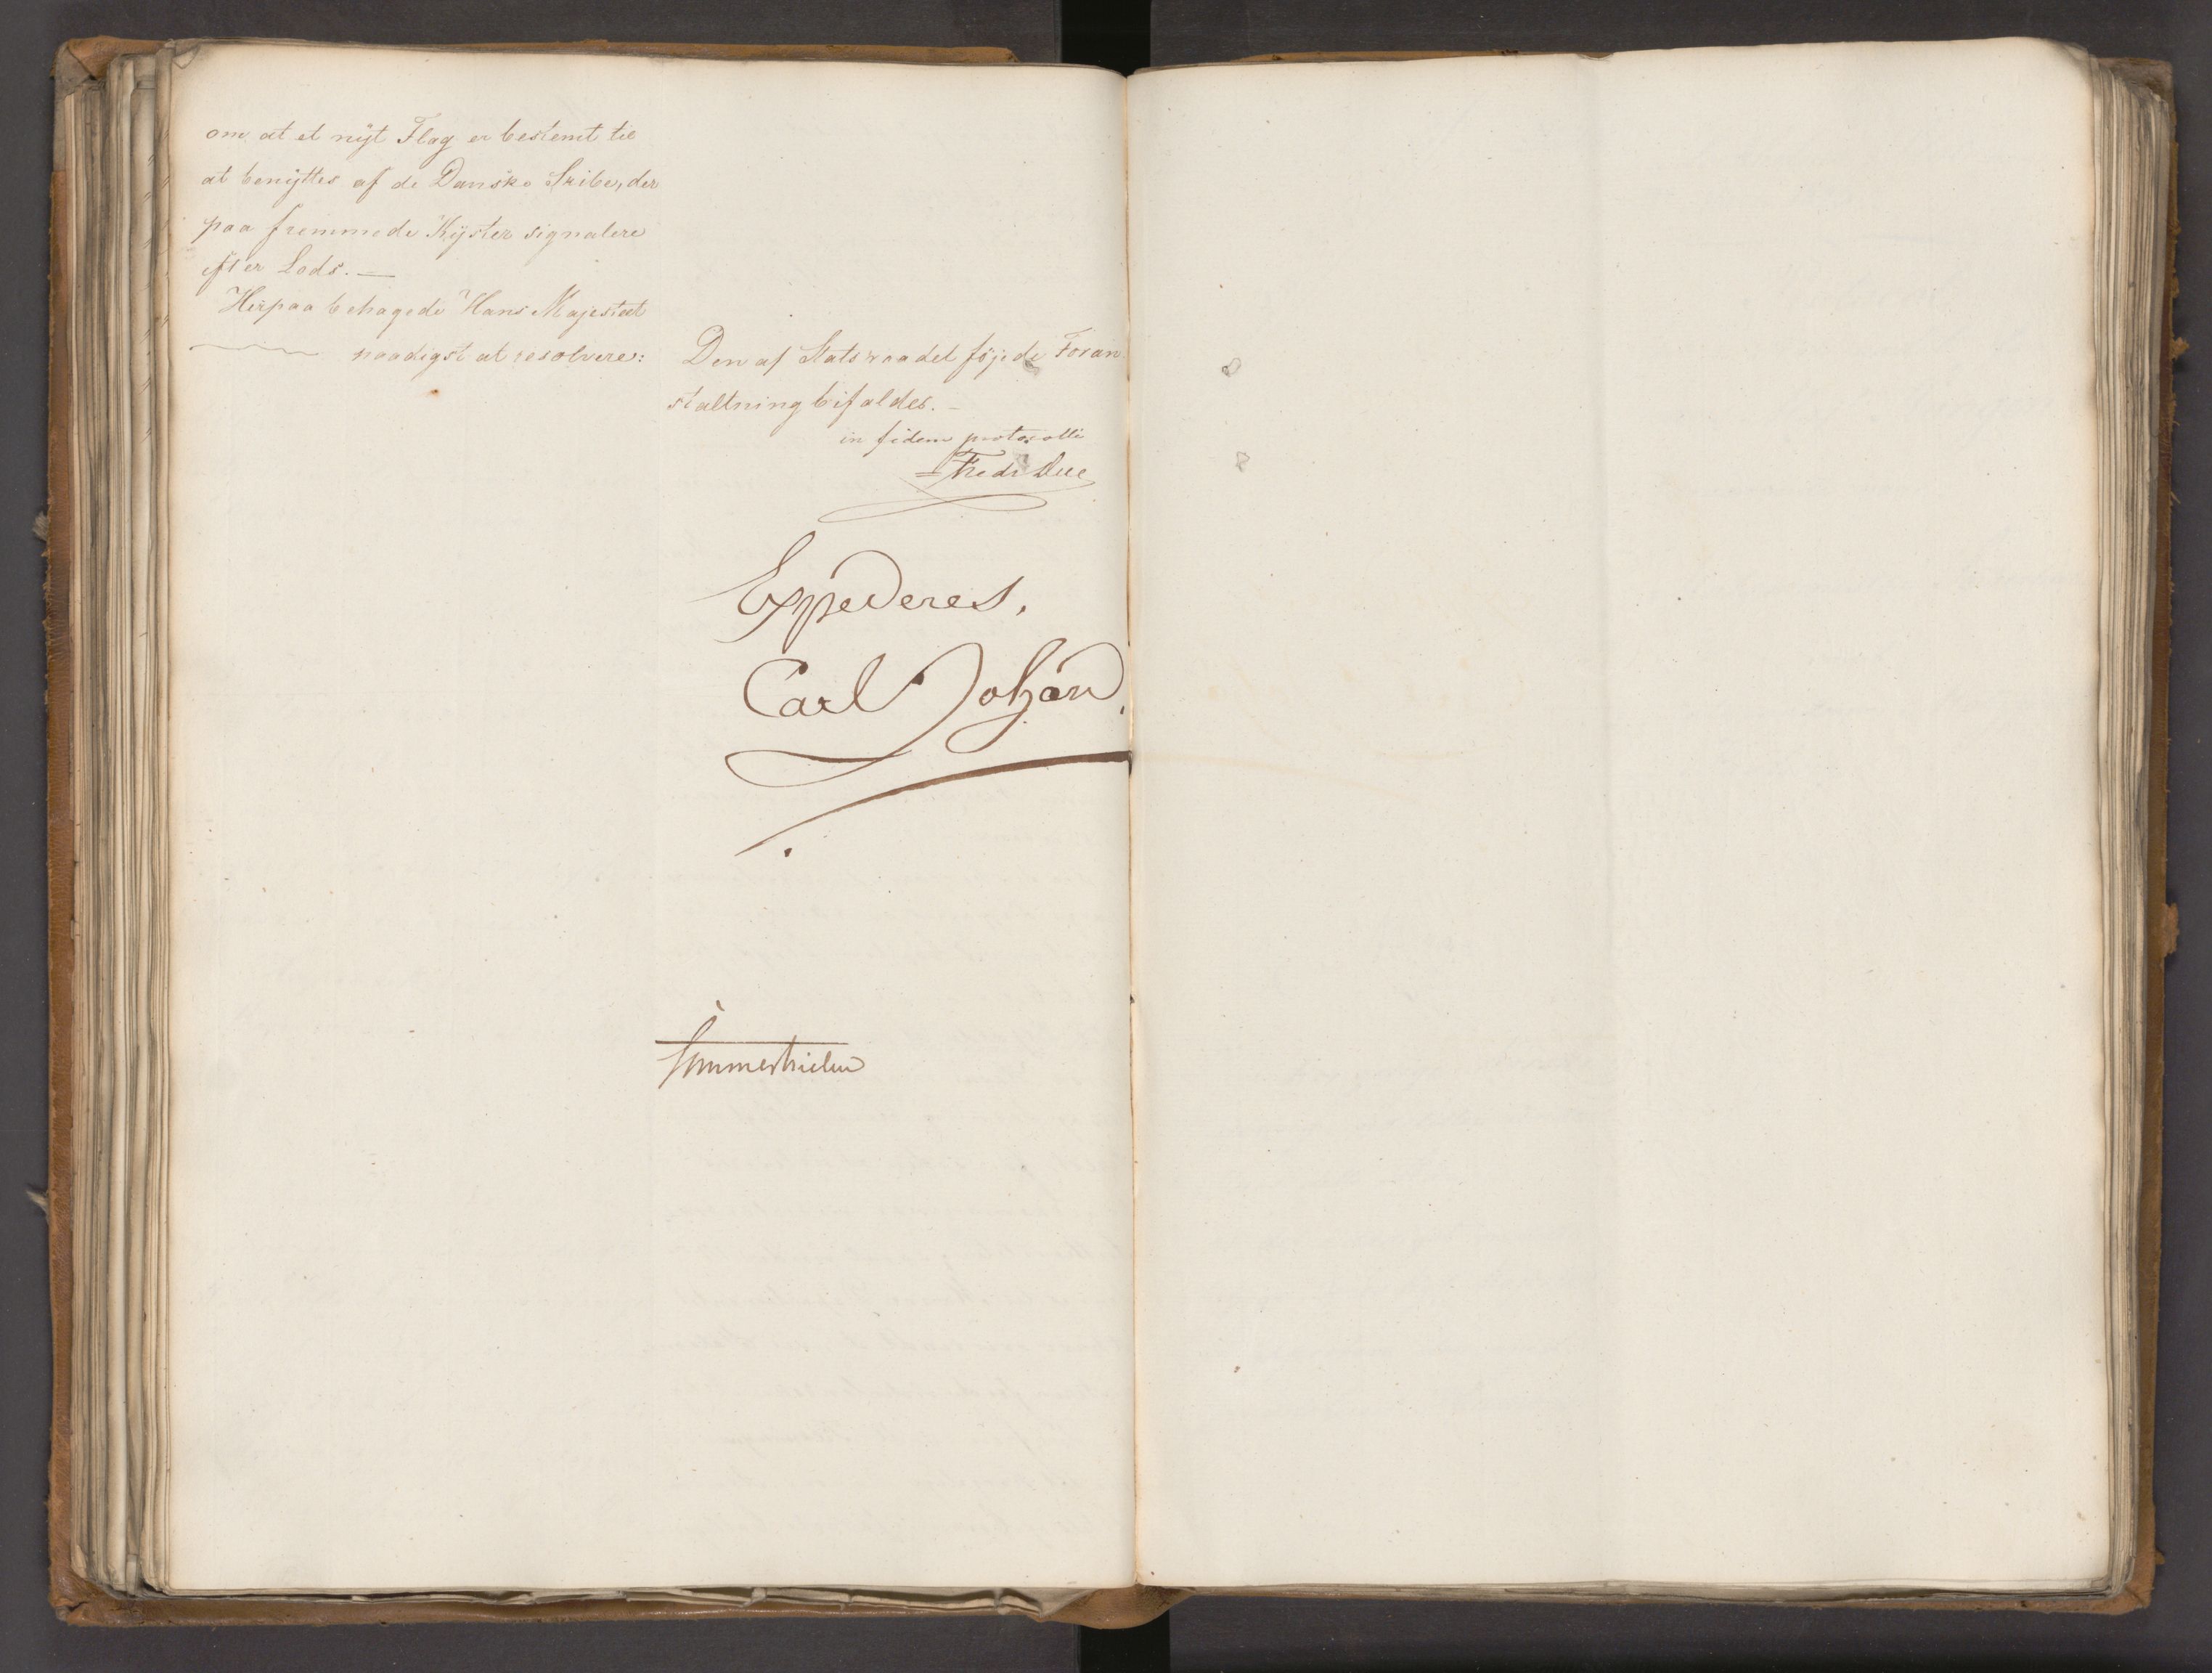 om at et nyt Flag er bestemt til
at benyttes af de Danske Skibe, der
paa fremmede Kyster signalere
efter Lods. —
Herpaa behagede Hans Majestæt
naadigst at resolvere:
Den af Statsraadet føjede Foran
staltning bifaldes. —
in fidem protocolli
Fredr Due
Expederes,
Carl Johan.
Sommerhielm